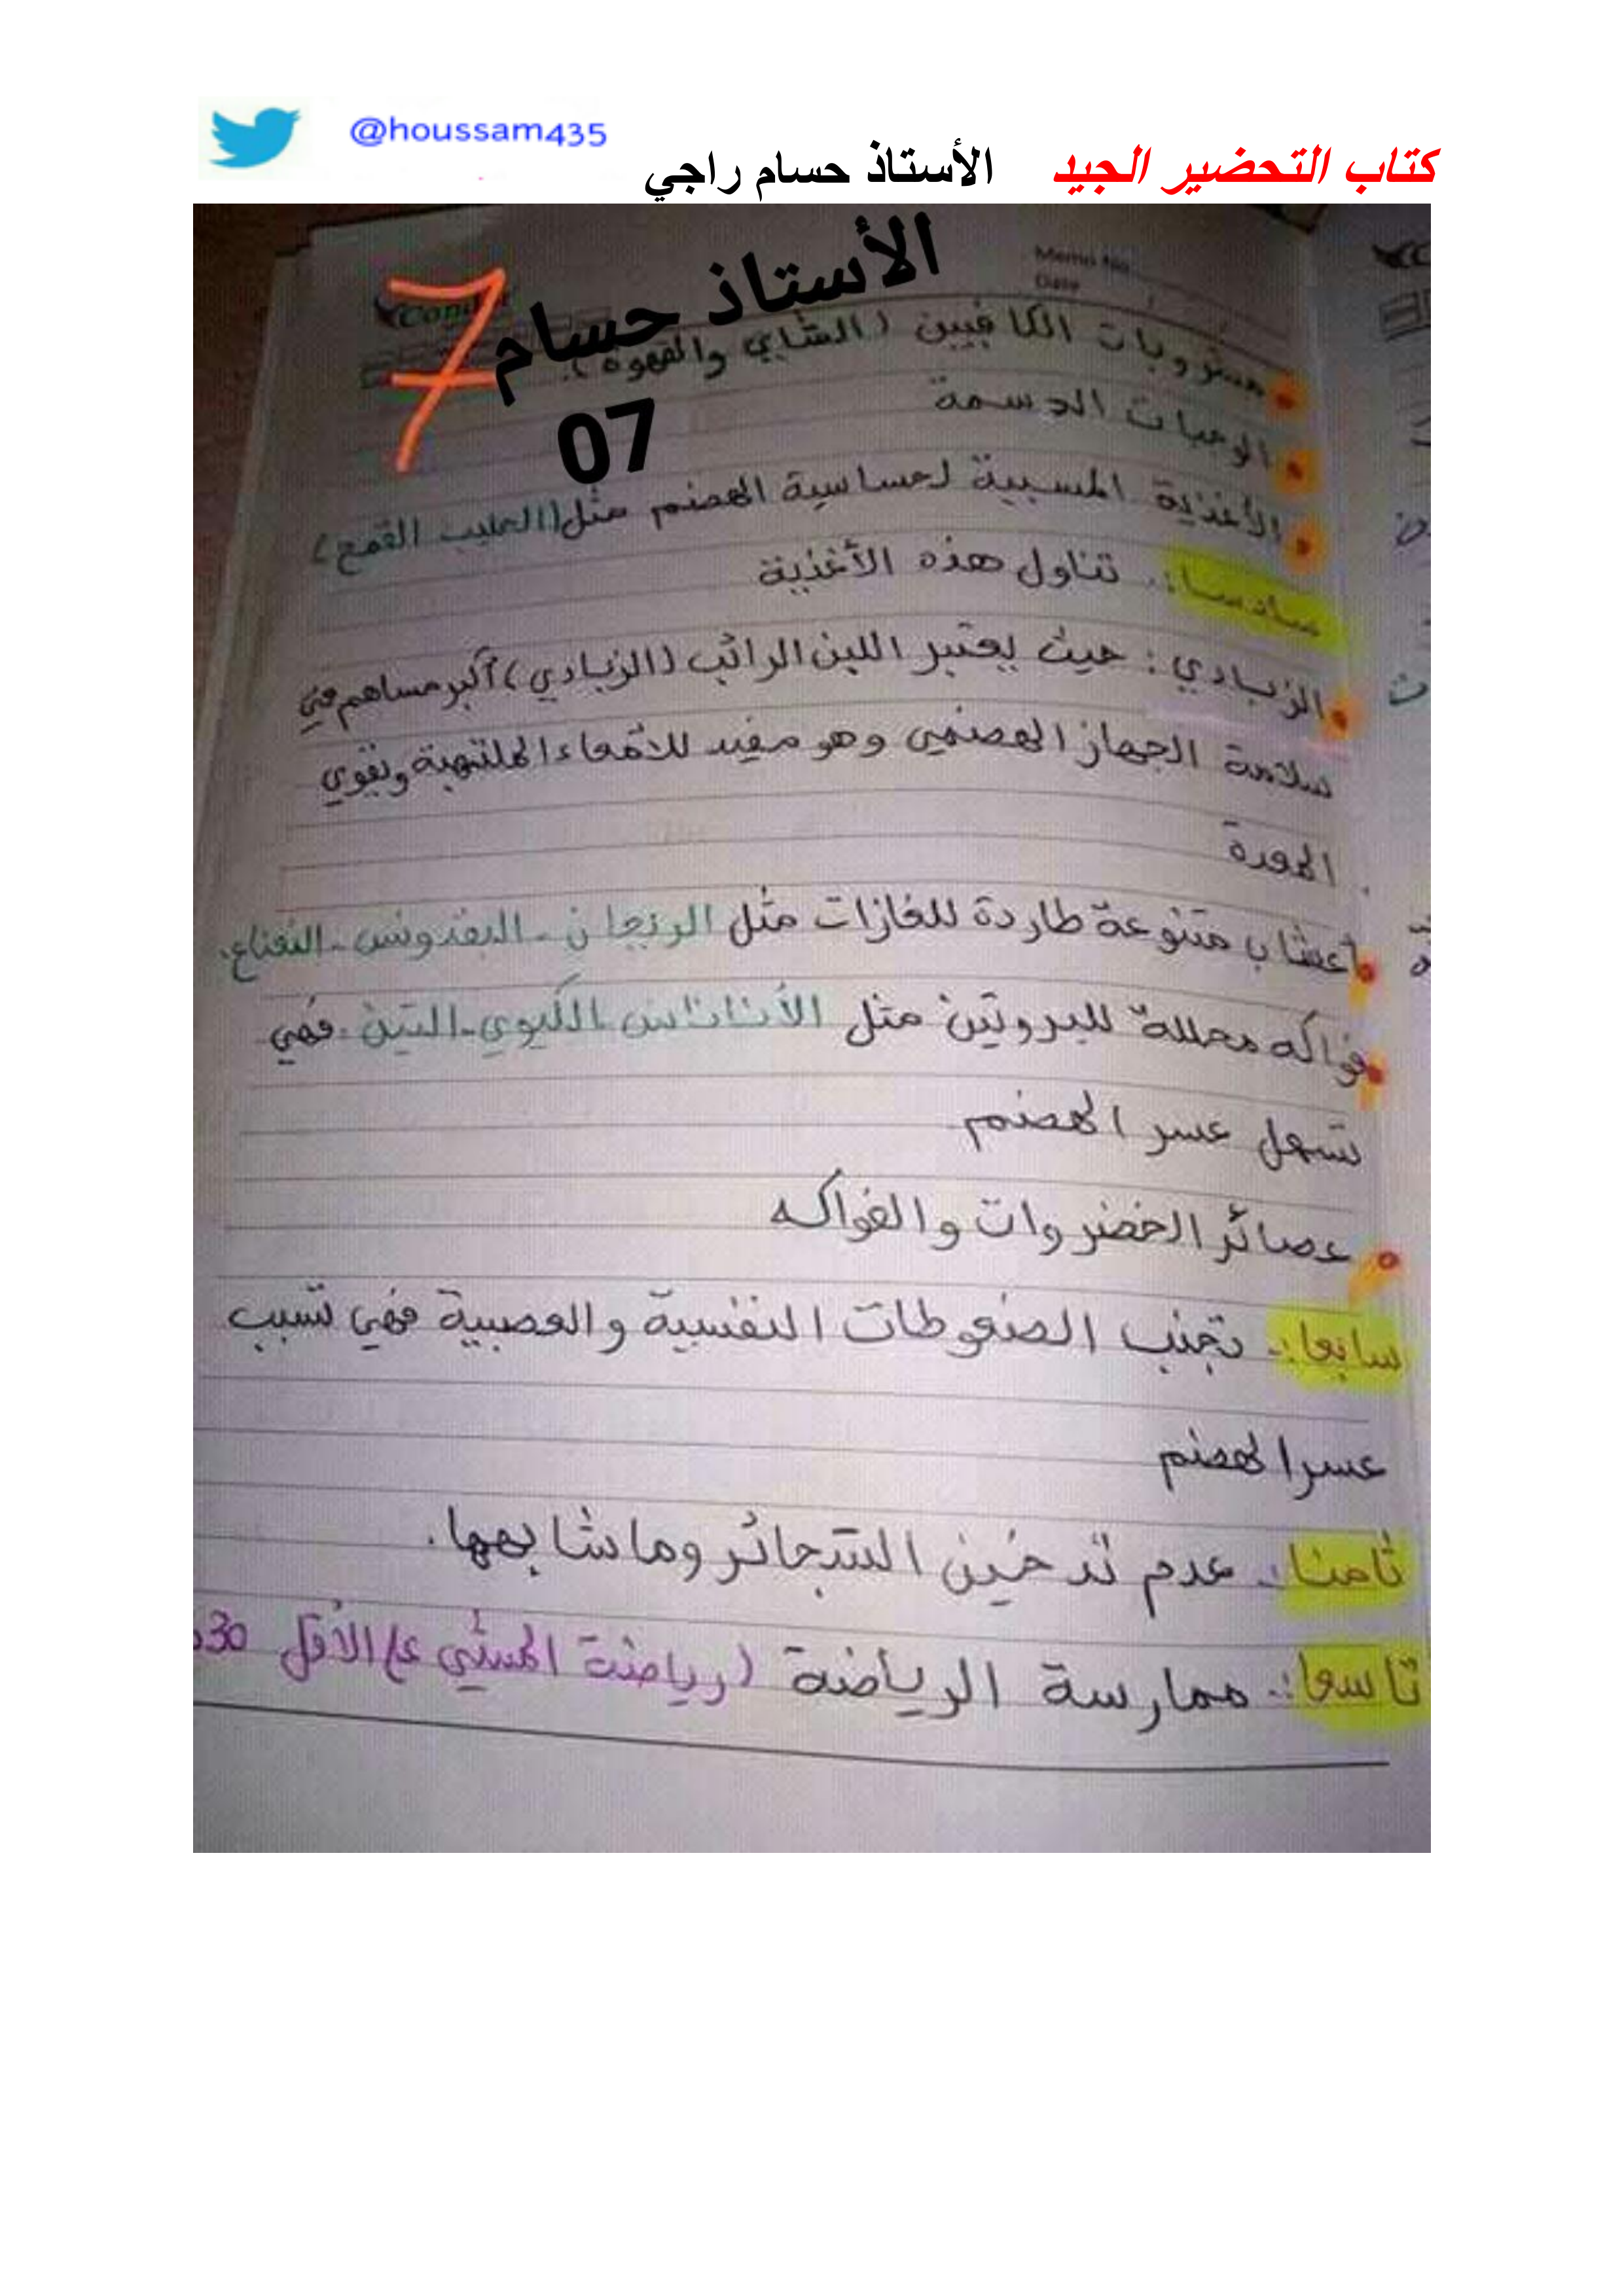 @houssam435
كتاب التحضير الجيد الأستاذ حسام راجي
الأستاذ حسام
07
7
Memo No
Date
مشروبات الكافيين (الشاي والقهوة).
الوجبات الدسمة
الأغذية المسببة لحساسية الهضم مثل (الحليب القمح)
سادسا:. تناول هذه الأغذية
الزبادي: حيث يعتبر اللبن الرائب (الزبادي) أكبر مساهم في
سلامة الجهاز الهضمي وهو مفيد للأمعاء الملتهبة ونقوي
المعدة
أعشاب متنوعة طاردة للغازات مثل الرنجان - البقدونس - النعناع.
فواكه محللة للبروتين مثل الأناناس - الكيوي - التين. فهي
تسهل عسر الهضم
عصائر الخضروات والفواكه
سابعا:. تجنب الضغوطات النفسية والعصبية فهي تسبب
عسر الهضم
ثامنا:. عدم تدخين السجائر وما شابهها.
تاسعا:. ممارسة الرياضة (رياضة المشي ع الأقل 30